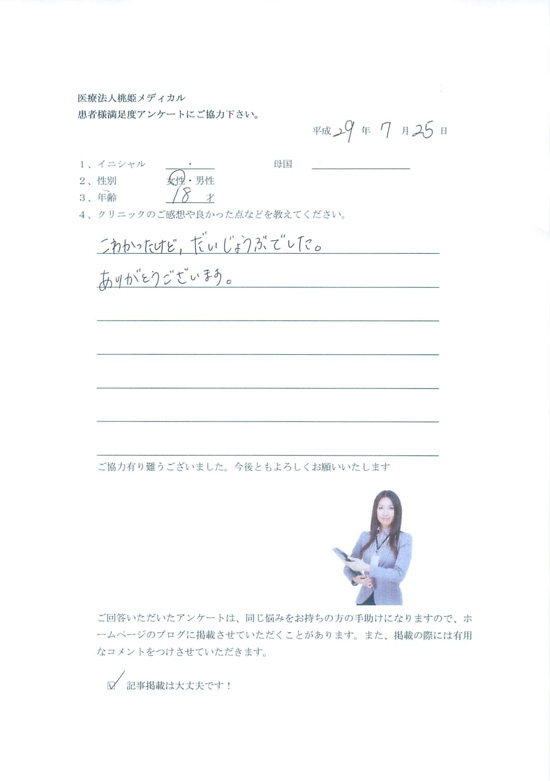 医療法人桃姫メディカル
患者様満足度アンケートにご協力下さい。
平成 29 年 7 月 25 日
1、イニシャル ・ 母国
2、性別 女性・男性
3、年齢 18 才
4、クリニックのご感想や良かった点などを教えてください。
こわかったけど,だいじょうぶでした。
ありがとうございます。
ご協力有り難うございました。今後ともよろしくお願いいたします
ご回答いただいたアンケートは、同じ悩みをお持ちの方の手助けになりますので、ホ
ームページのブログに掲載させていただくことがあります。また、掲載の際には有用
なコメントをつけさせていただきます。
☑ 記事掲載は大丈夫です！